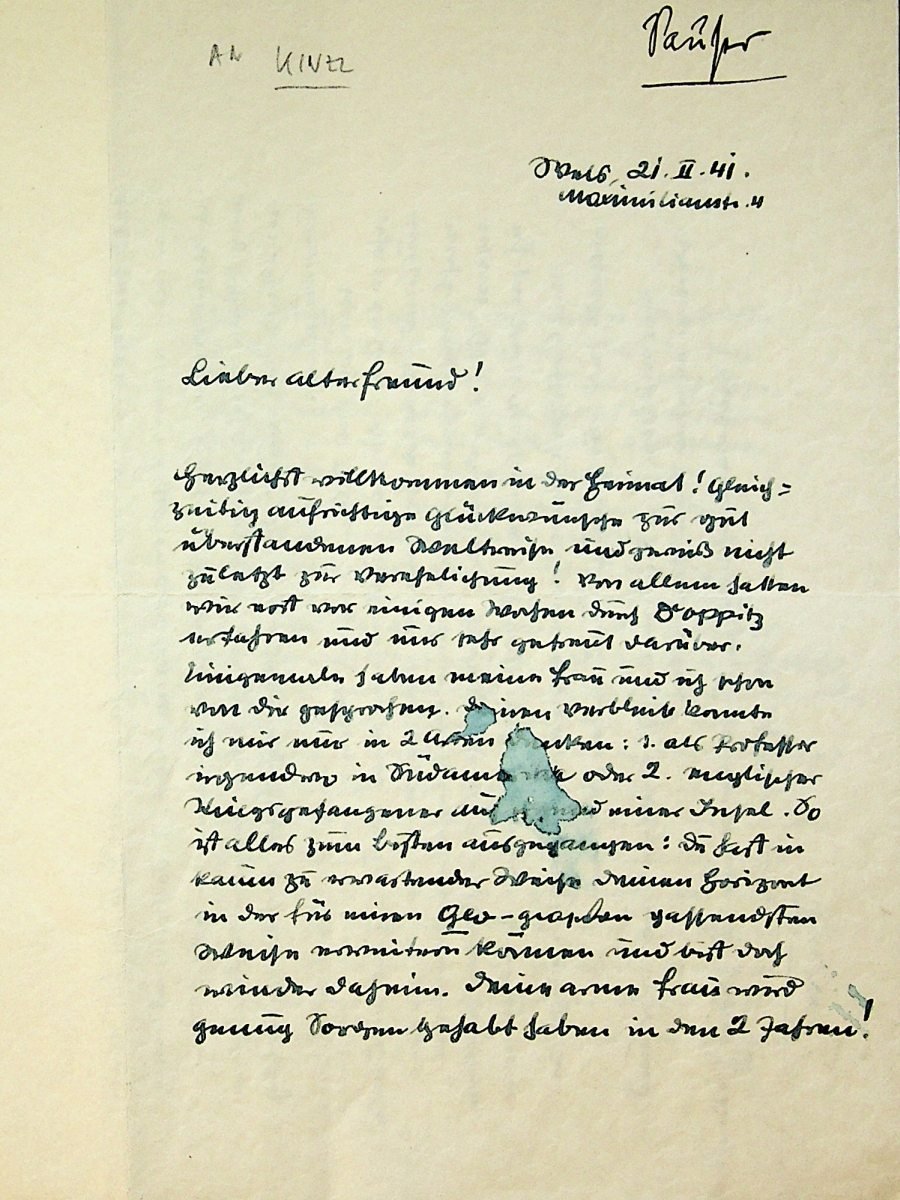 AN KINZL
Pauser
Wels, 21. II. 41.
Maximilianstr. 4
Lieber alter Freund!
Herzlichst willkommen in der Heimat! Gleich=
zeitig aufrichtige Glückwünsche zur gut
überstandenen Weltreise und gewiß nicht
zuletzt zur Verehelichung! Von allem hatten
wir erst vor einigen Wochen durch Doppitz
erfahren und uns sehr gefreut darüber.
Einigemale haben meine Frau und ich schon
von dir gesprochen. Deinen Verbleib konnte
ich mir nur in 2 Arten denken: 1. als Professor
irgendwo in Südamerika oder 2. englischer
Kriegsgefangener auf irgend einer Insel. So
ist alles zum besten ausgegangen: du hast in
kaum zu erwartender Weise deinen Horizont
in der für einen Geo-graphen passendsten
Weise erweitern können und bist doch
wieder daheim. Deine arme Frau wird
genug Sorgen gehabt haben in den 2 Jahren!